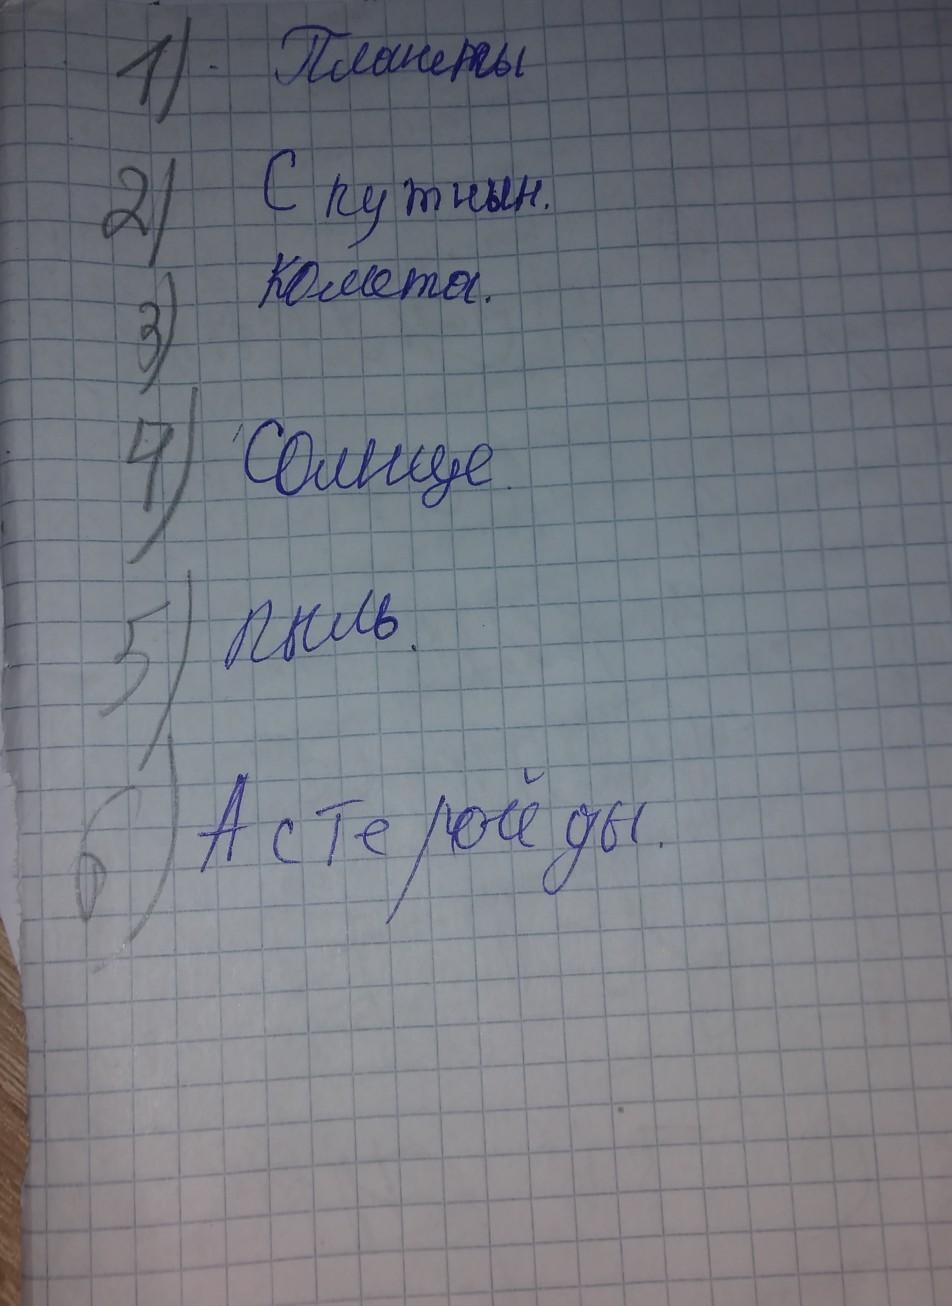 1) Планеты
2) Спутнын.
3) Комета.
4) Солнце.
5) пыль.
6) Астеройды.